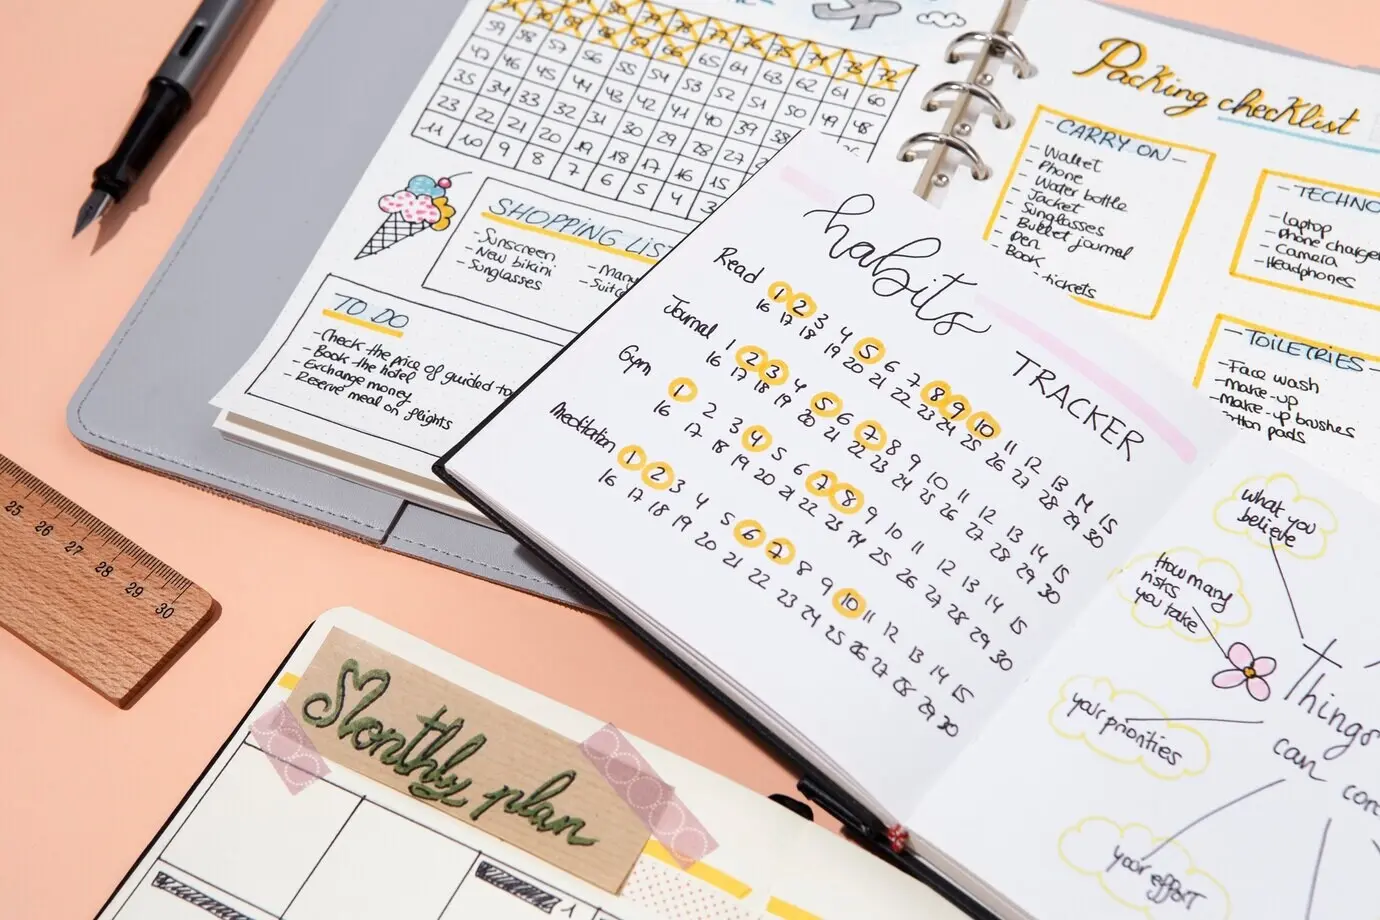 81 80 79 78 77 76 75 74 73 72
59 58 57 56 55 54 53 52 51 50 49 48
47 46 45 44 43 42 41 40 39 38
35 34 33 32 31 30 29 28 27
23 22 21 20 19 18 17 16 15
11 10 9 8 7 6 5 4 3
69 68 67 66 65 64 63 62 61 60
SHOPPING LIST
- Sunscreen
- New bikini
- Sunglasses
TO DO
- Check the price of guided
- Book the hotel
- Exchange money
- Reserve meal on flights
Packing checklist
- CARRY ON -
- Wallet
- Phone
- Water bottle
- Jacket
- Sunglasses
- Bullet journal
- Pen
- Book
- tickets
- TECHNO
- Laptop
- Phone charger
- Camera
- Headphones
- TOILETRIES -
- Face wash
- Make-up
- Make-up brushes
pads
habits
TRACKER
Read 1 2 3 4 5 6 7 8 9 10 11 12 13 14 15
16 17 18 19 20 21 22 23 24 25 26 27 28 29 30
Journal 1 2 3 4 5 6 7 8 9 10 11 12 13 14 15
16 17 18 19 20 21 22 23 24 25 26 27 28 29 30
Gym 1 2 3 4 5 6 7 8 9 10 11 12 13 14 15
16 17 18 19 20 21 22 23 24 25 26 27 28 29 30
Meditation 1 2 3 4 5 6 7 8 9 10 11 12 13 14 15
16 17 18 19 20 21 22 23 24 25 26 27 28 29 30
what you
believe
How many
risks
you take
your priorities
your effort
Things
can
con
25 26 27 28 29 30
Monthly plan
1